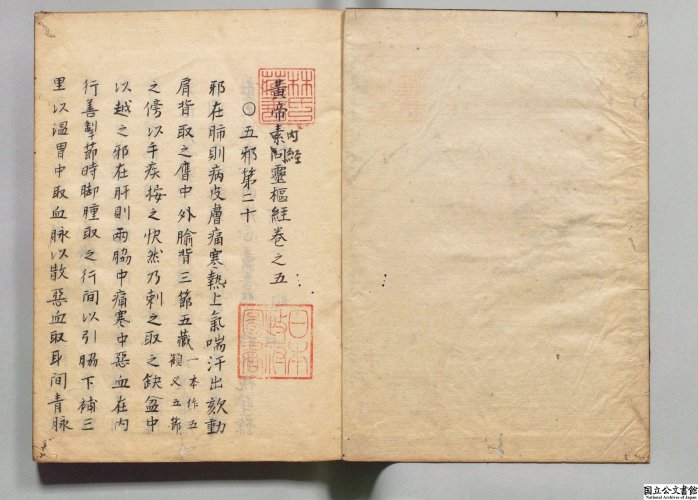 黃帝素問靈樞經卷之五
内經
○五邪第二十
邪在肺則病皮膚痛寒熱上氣喘汗出欬動
肩背取之膺中外腧背三節五藏一本作五顀又五節
之傍以手疾按之快然乃刺之取之缺盆中
以越之邪在肝則兩脇中痛寒中惡血在内
行善掣節時脚腫取之行間以引脇下補三
里以溫胃中取血脉以散惡血取耳間青脉
林氏藏書
日本政府圖書
国立公文書館
National Archives of Japan